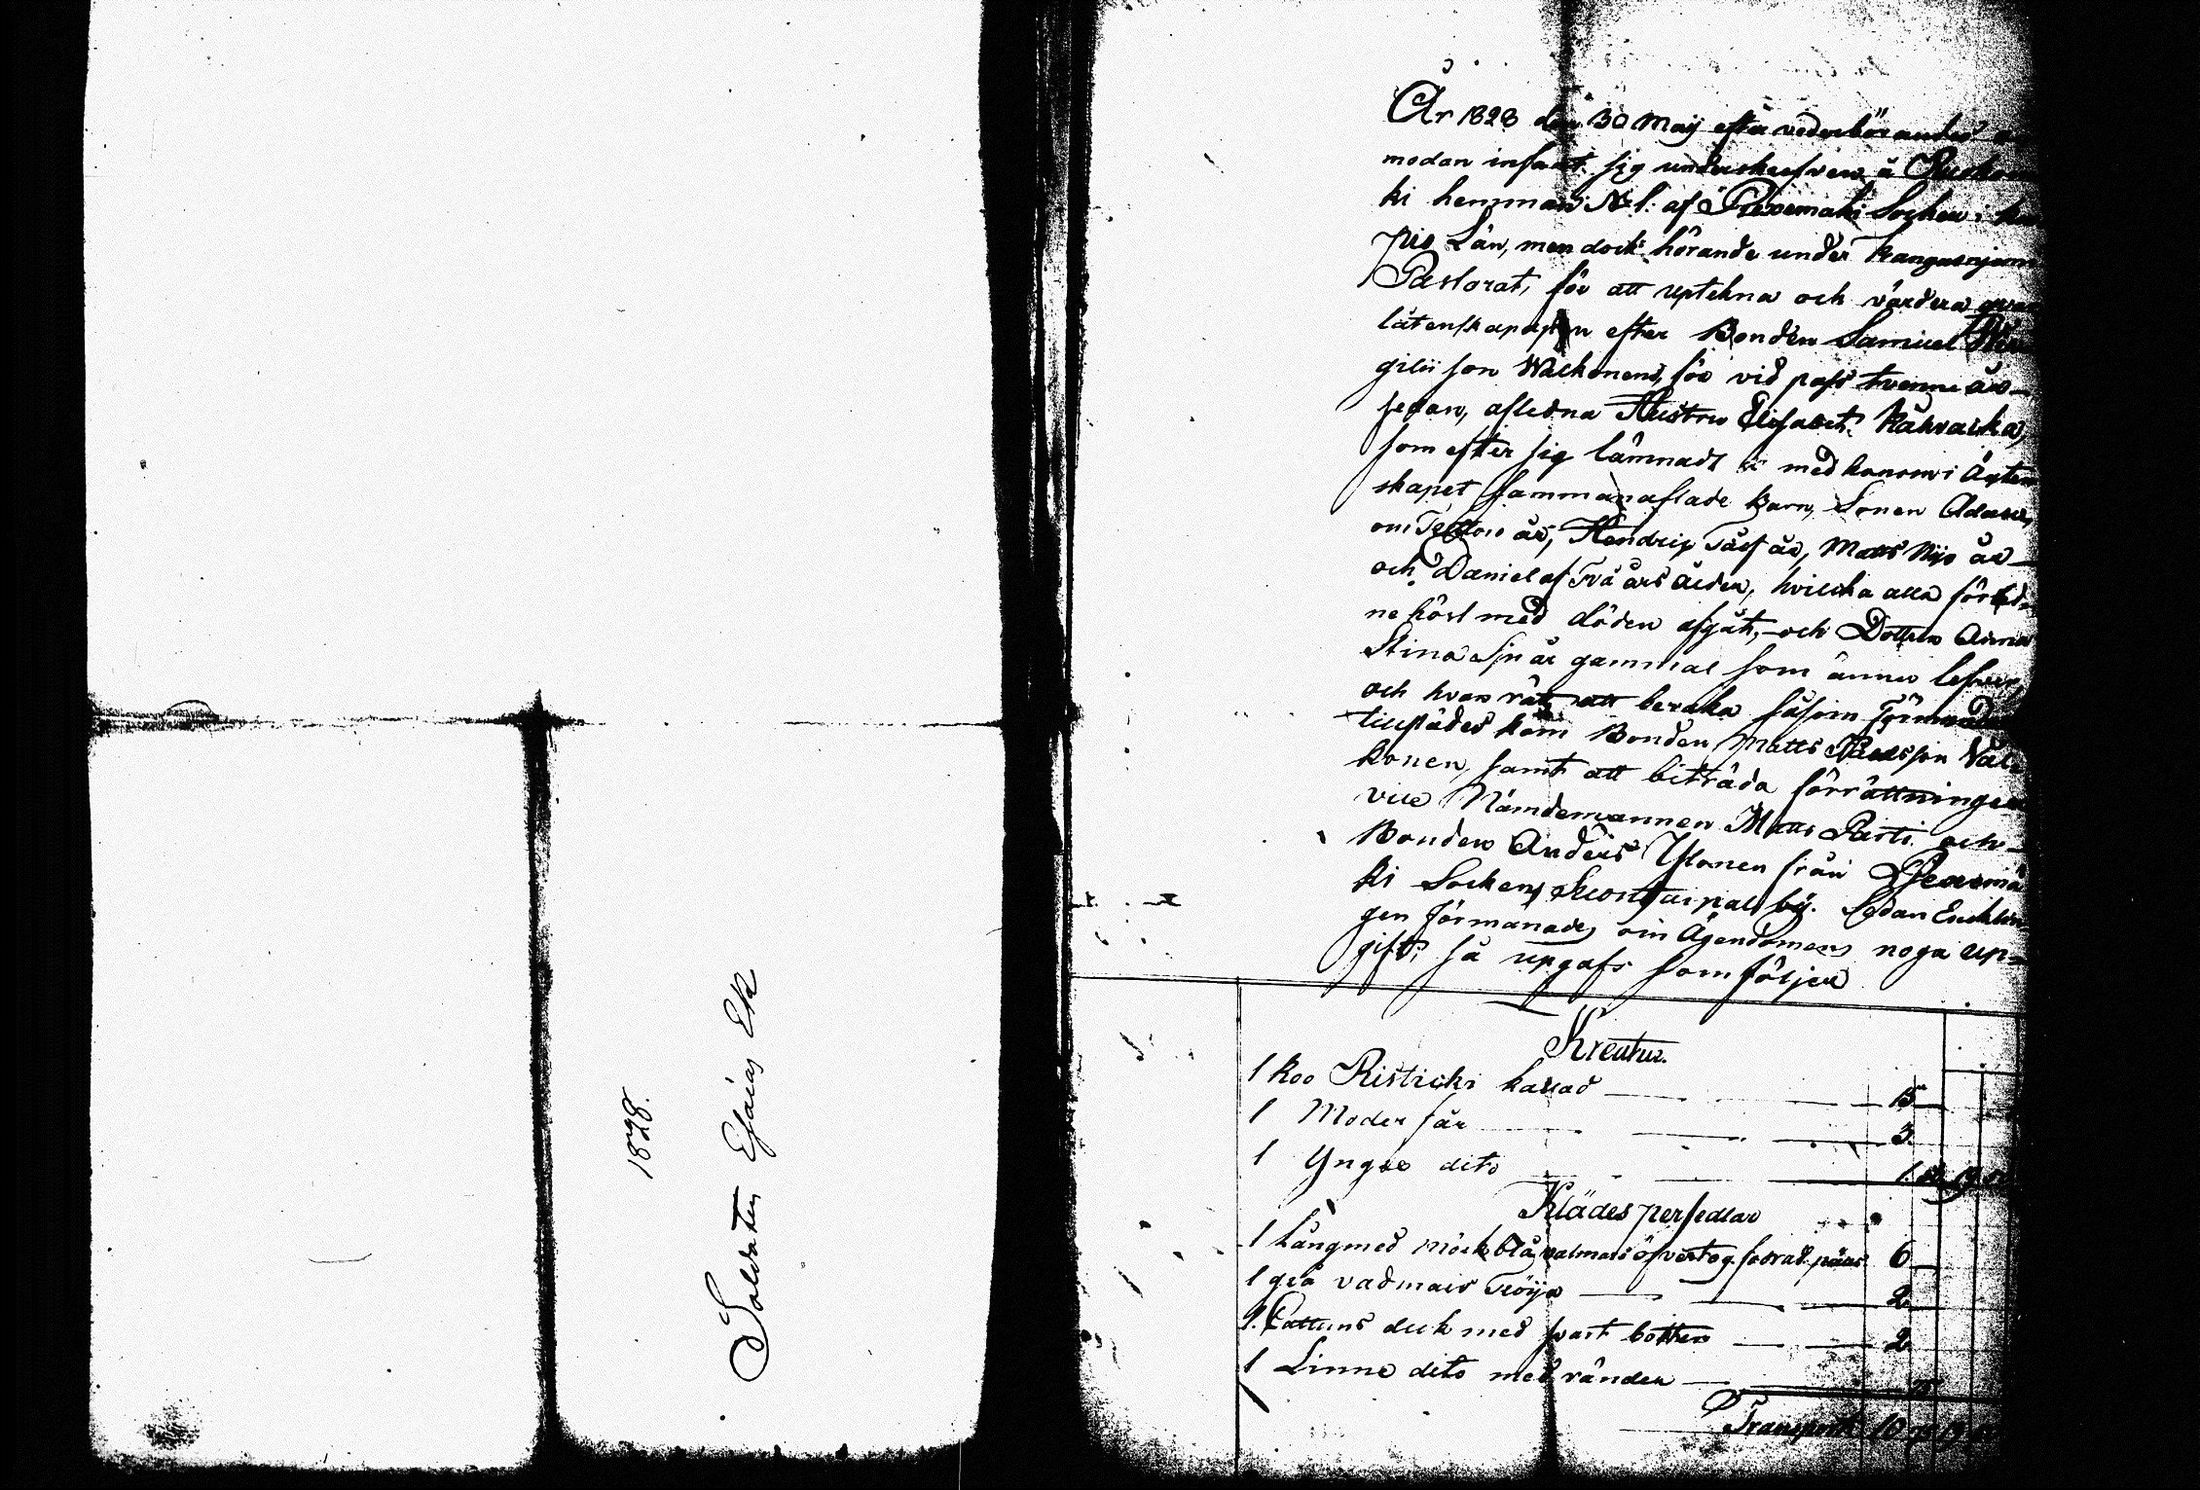 1828.
Soldaten Esaias Ek
År 1828 den 30 Maij efter vederbörandes
modan infant sig underskrefven å
ki hemman No 1: af Piexemäki Socken i
pio Län, men dock hörande under Kangasnjemi
Pastorat, för att uptekna och värdera qvar
låtenskapen efter Bonden Samuel
gilii son Walkonens, för vid pass tvenne år
sedan, afledna Hustru Elisabet
som efter sig lämnadt med honom i Äkten
skapet sammanaflade Barn, Sonen Adam,
om år, Hendrik Tolf år, Matts Nijo år
och Daniel af Två års ålder, hvilcka alla förled
ne höst med döden afgåt, och Dottren Anna
Stina Sju år gammal som ännu lefver,
och hvars rätt att bevaka såsom Förmyndare
tillstädes kom Bonden Matts son Val
konen, samt att biträda förrättningen
vice Nämdemannen Matts Parti och
Bonden Anders Ylönen från Piexemä
ki Sockens by. Sedan Encklin
gen förmanades om Ägendomens noga up
gift; så upgafs som följer
Kreatur.
1 Koo Risticki kallad 15
1 Moder får 3
1 Yngre dito 1
Klädes persedlar
1 Långmed blå valmars öfvertog 6
1 grå vadmals Tröija 2
1 Cattuns duk med svart botten 2
1 Linne dito med ränder
Transport 10